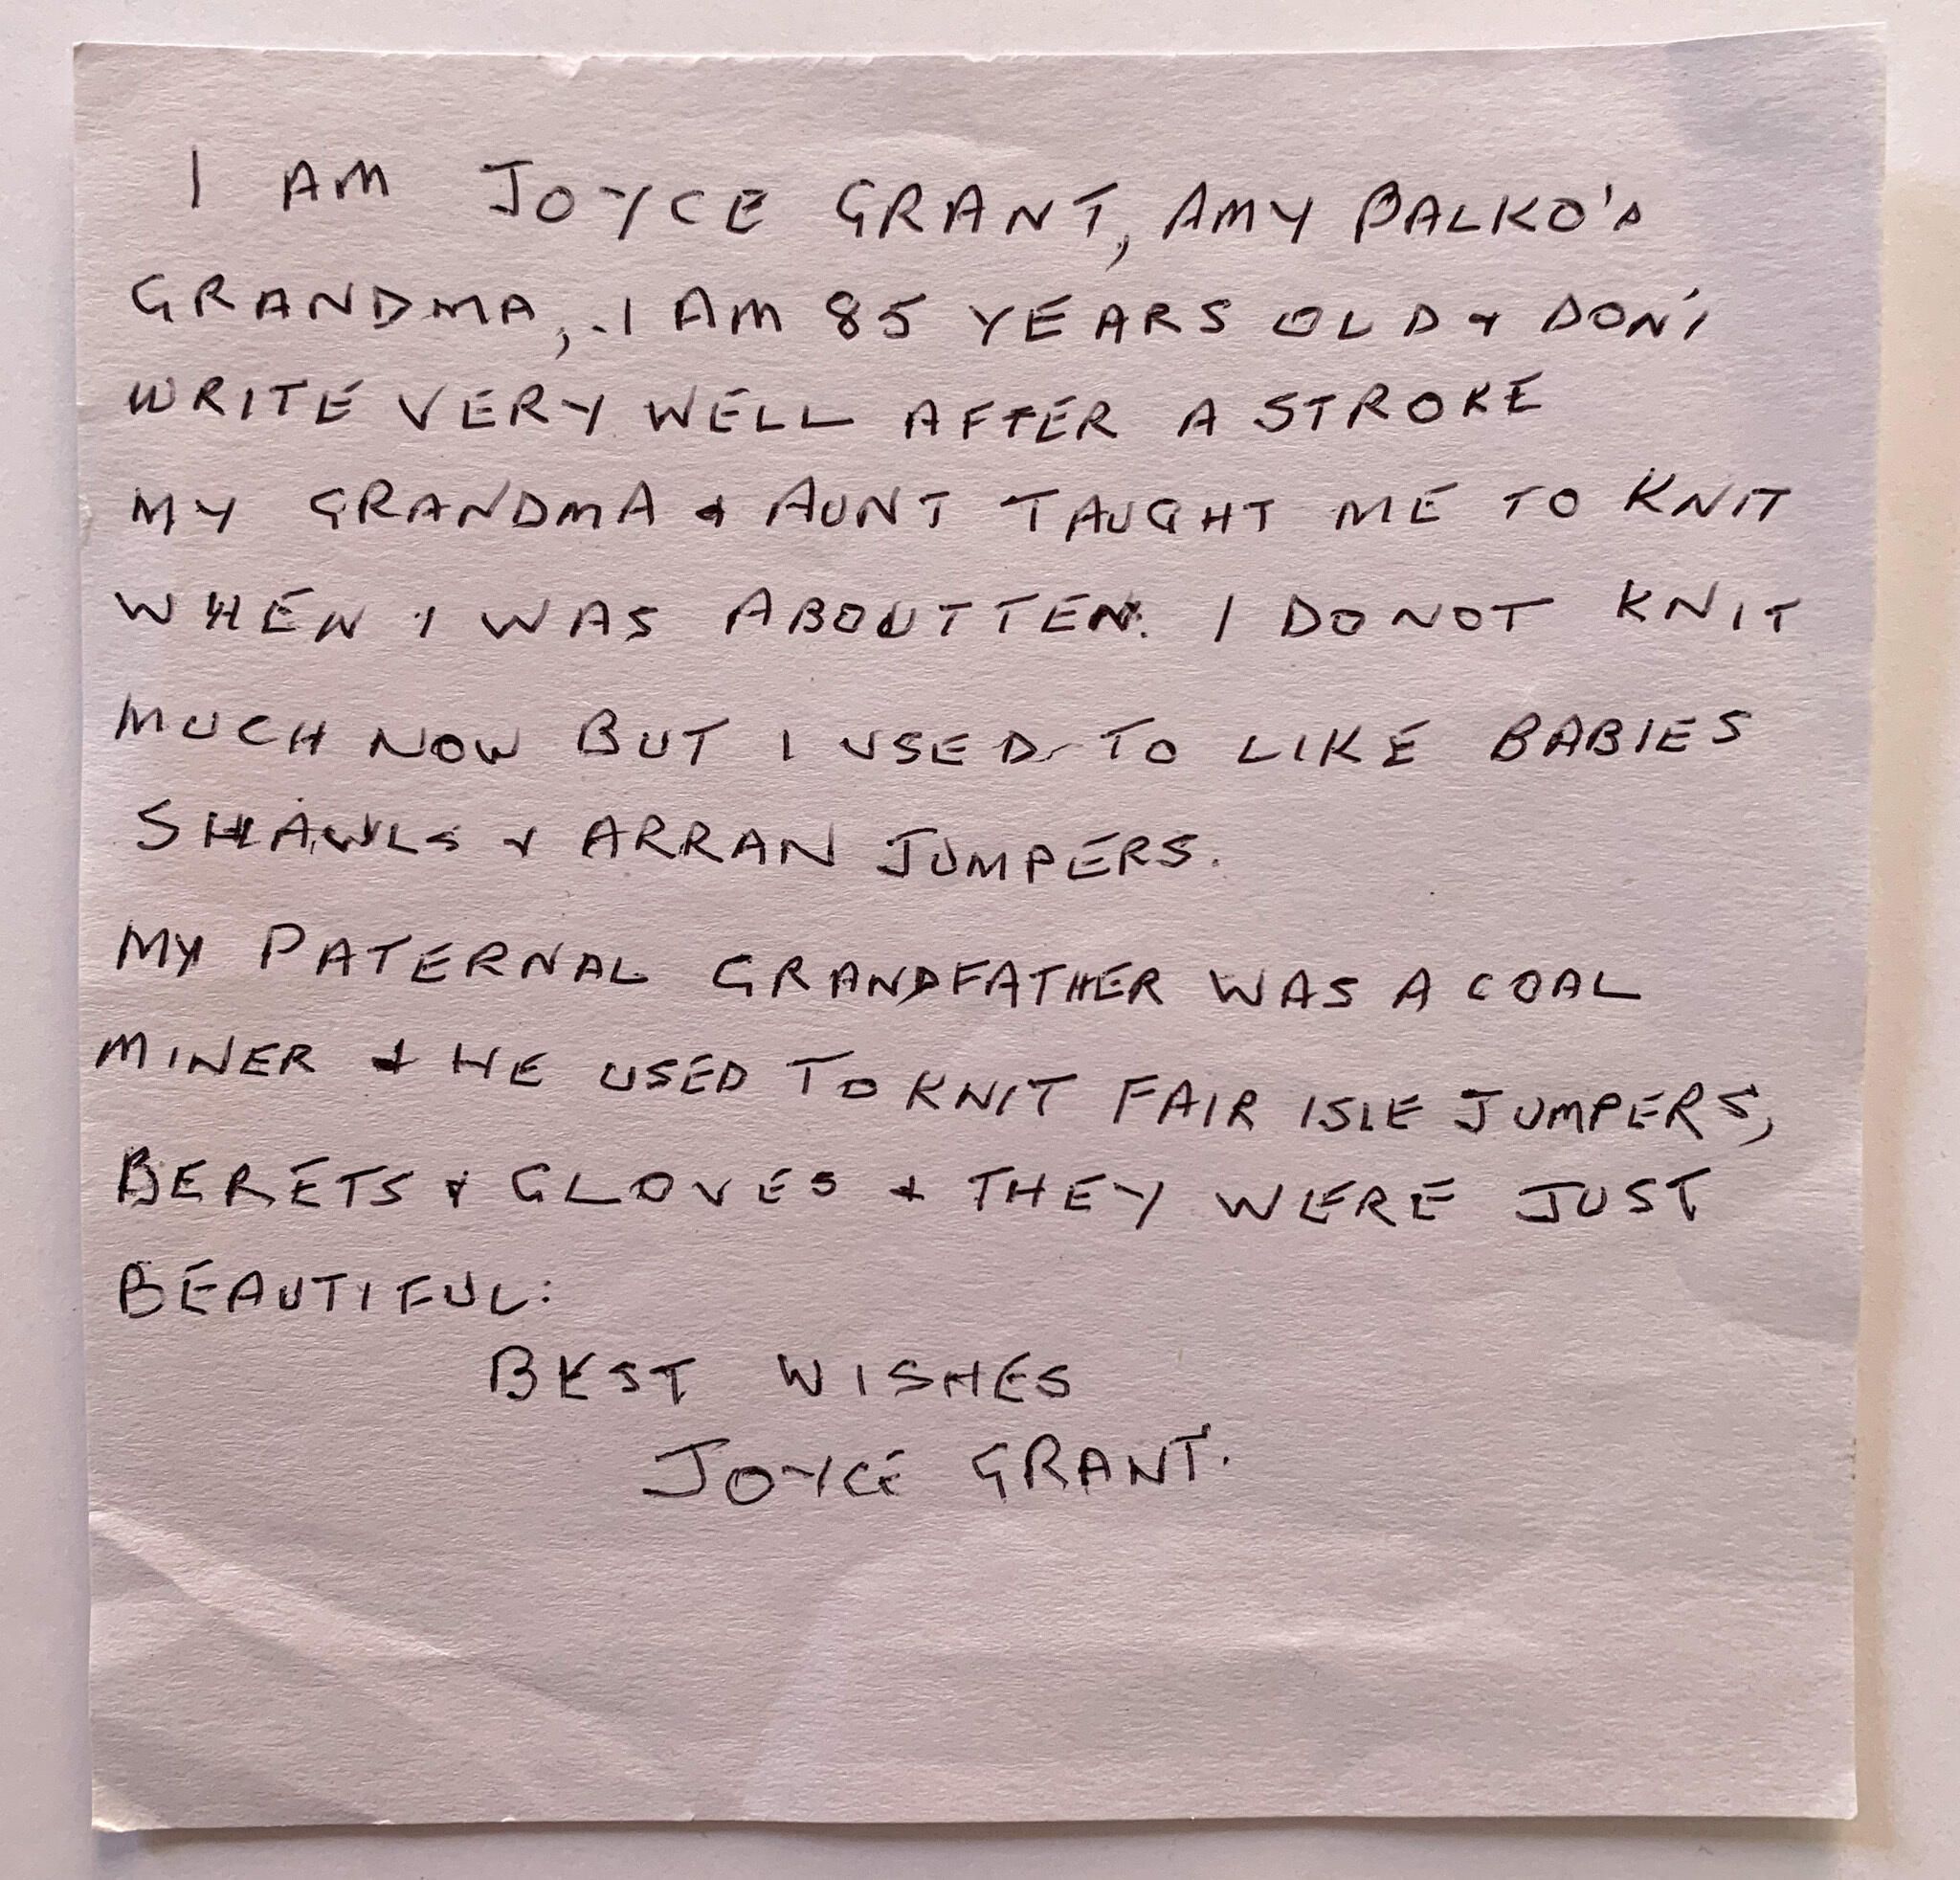 I AM JOYCE GRANT, AMY BALKO'S
GRANDMA, I AM 85 YEARS OLD & DON'T
WRITE VERY WELL AFTER A STROKE
MY GRANDMA & AUNT TAUGHT ME TO KNIT
WHEN I WAS ABOUT TEN. I DO NOT KNIT
MUCH NOW BUT I USED TO LIKE BABIES
SHAWLS & ARRAN JUMPERS.
MY PATERNAL GRANDFATHER WAS A COAL
MINER & HE USED TO KNIT FAIR ISLE JUMPERS,
BERETS & GLOVES & THEY WERE JUST
BEAUTIFUL:
BEST WISHES
JOYCE GRANT.